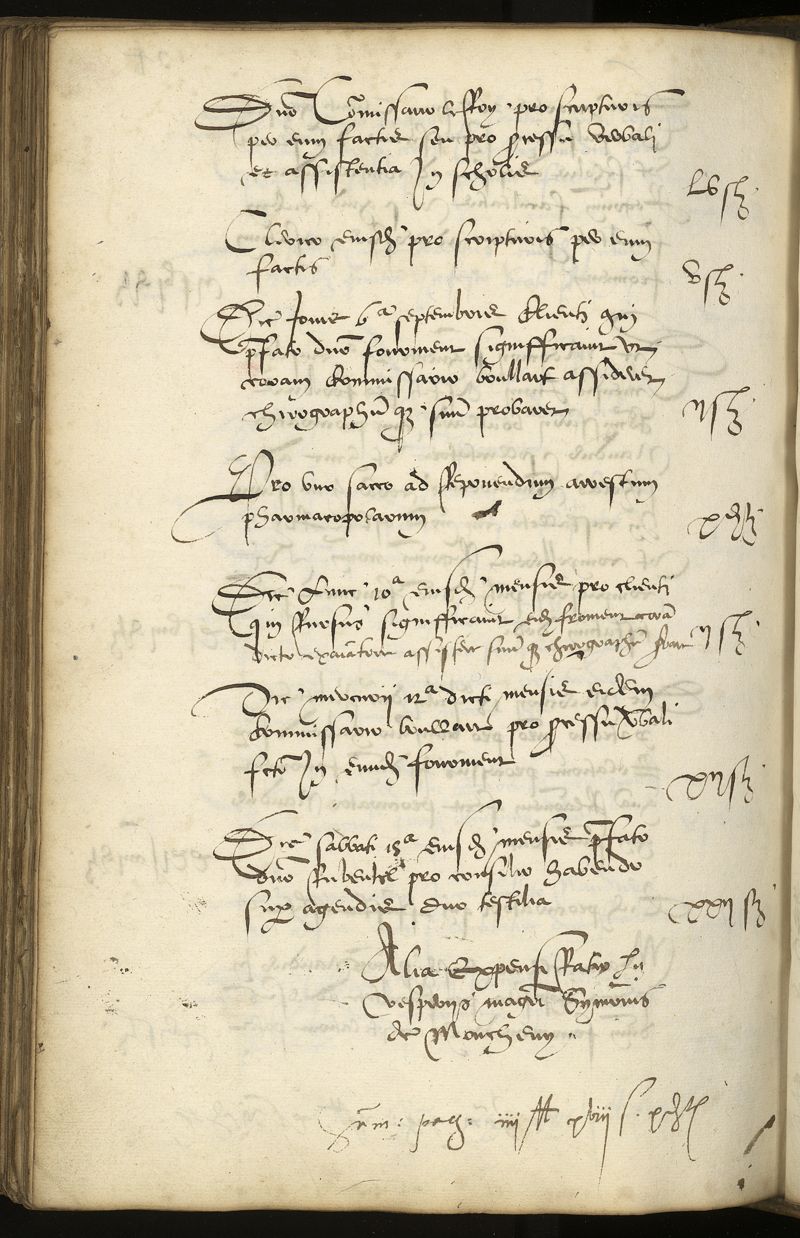 Dno Comissario le Roy pro scripturis
per eum factis seu pro processu verbali
et assistentia In scholis
lv s tz
Clerico eiusd pro scripturis per eum
factis
v s tz
Die Jovis 6a septembris clienti qui
prefato dno fourment significavit ut
coram commissario boullart assideret
chirographu q suu probaret
ii s tz
Pro uno sacco ad reponendum arrestum
pharmacopolarum
x d tz
Die lune 10a eiusd mensis pro clienti
qui rursus significavit eid froment cora
dicto assisteret suu q chirographu
ii s tz
Die mercurii 12a dicti mensis eidem
commissario boullart pro processu verbali
fcto In eumd fourment
xii s tz
Die sabbati 15a eiusd mensis prefato
dno Rubentel pro consilio habendo
sup agendis duo testilia
xxii s tz
Alia Expensa Ratio In
vesperiis magri Symonis
de Moncheny
Sum: pag: iiii lt xviii s. x d tz